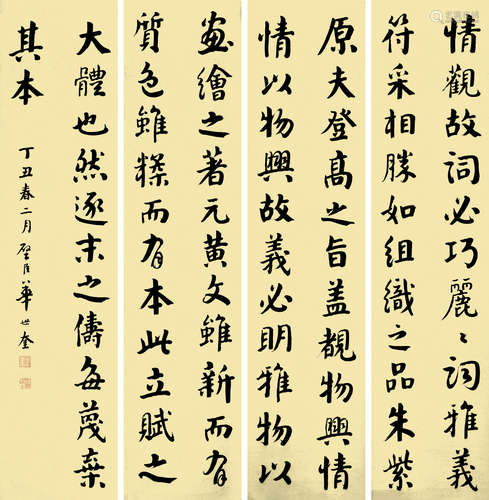 情觀故詞必巧麗〻詞雅義
符采相勝如組織之品朱紫
原夫登高之旨蓋覩物興情
情以物興故義必明雅物以
畫繪之著元黃文雖新而有
質色雖糅而有本此立賦之
大體也然逐末之儔每蔑棄
其本
丁丑春二月璧臣華世奎